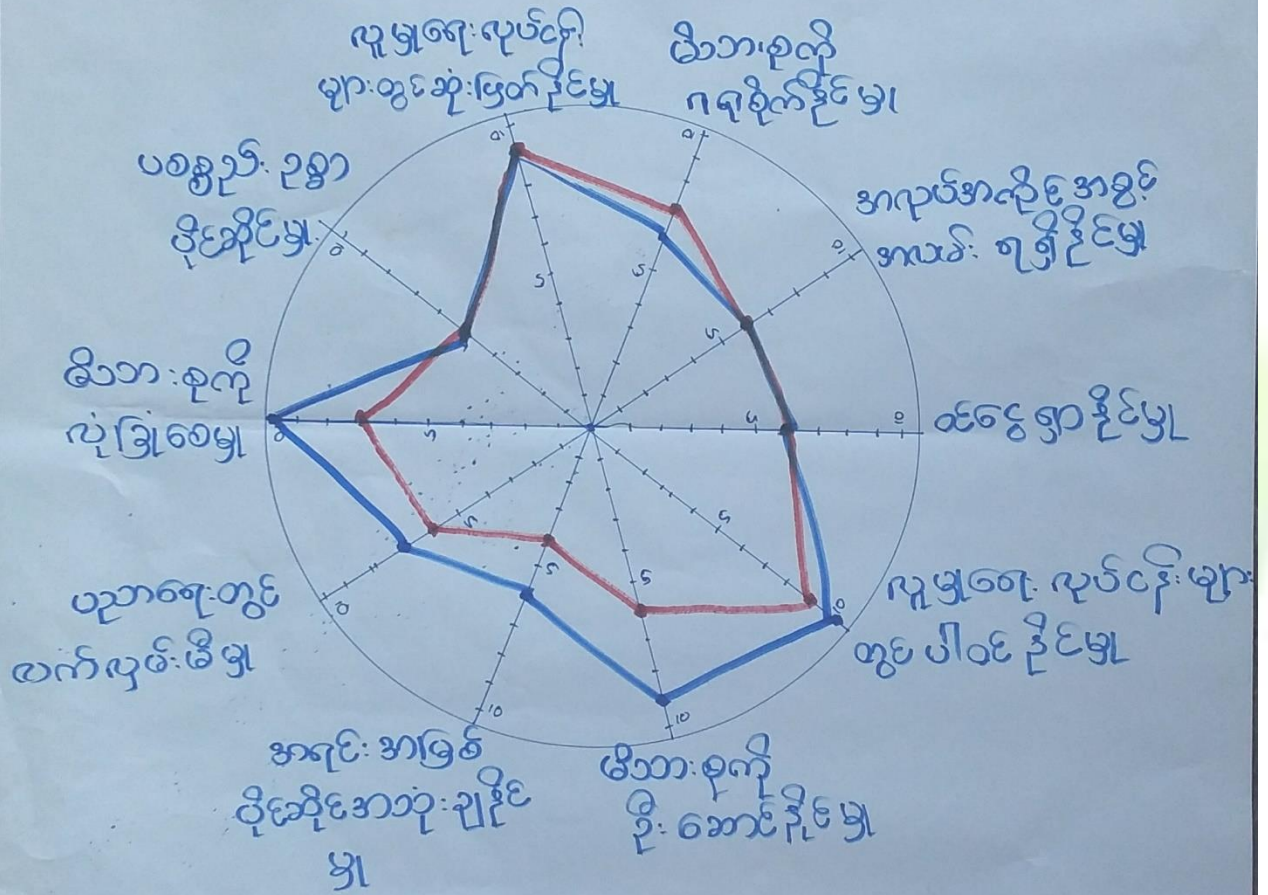 လူမှုရေးလုပ်ငန်း
များတွင်ဆုံးဖြတ်နိုင်မှု
မိသားစုကို
ဂရုစိုက်နိုင်မှု
အလုပ်အကိုင်အခွင့်
အလမ်း ရရှိနိုင်မှု
ဝင်ငွေရှာနိုင်မှု
လူမှုရေး လုပ်ငန်းများ
တွင် ပါဝင်နိုင်မှု
မိသားစုကို
ဦးဆောင်နိုင်မှု
အရင်းအမြစ်
ပိုင်ဆိုင်အသုံးချနိုင်
မှု
ပညာရေးတွင်
လက်လှမ်းမီမှု
မိသားစုကို
လုံခြုံစေမှု
ပစ္စည်းဥစ္စာ
ပိုင်ဆိုင်မှု
10
5
10
5
10
5
5
10
5
10
5
10
5
10
5
10
5
10
10